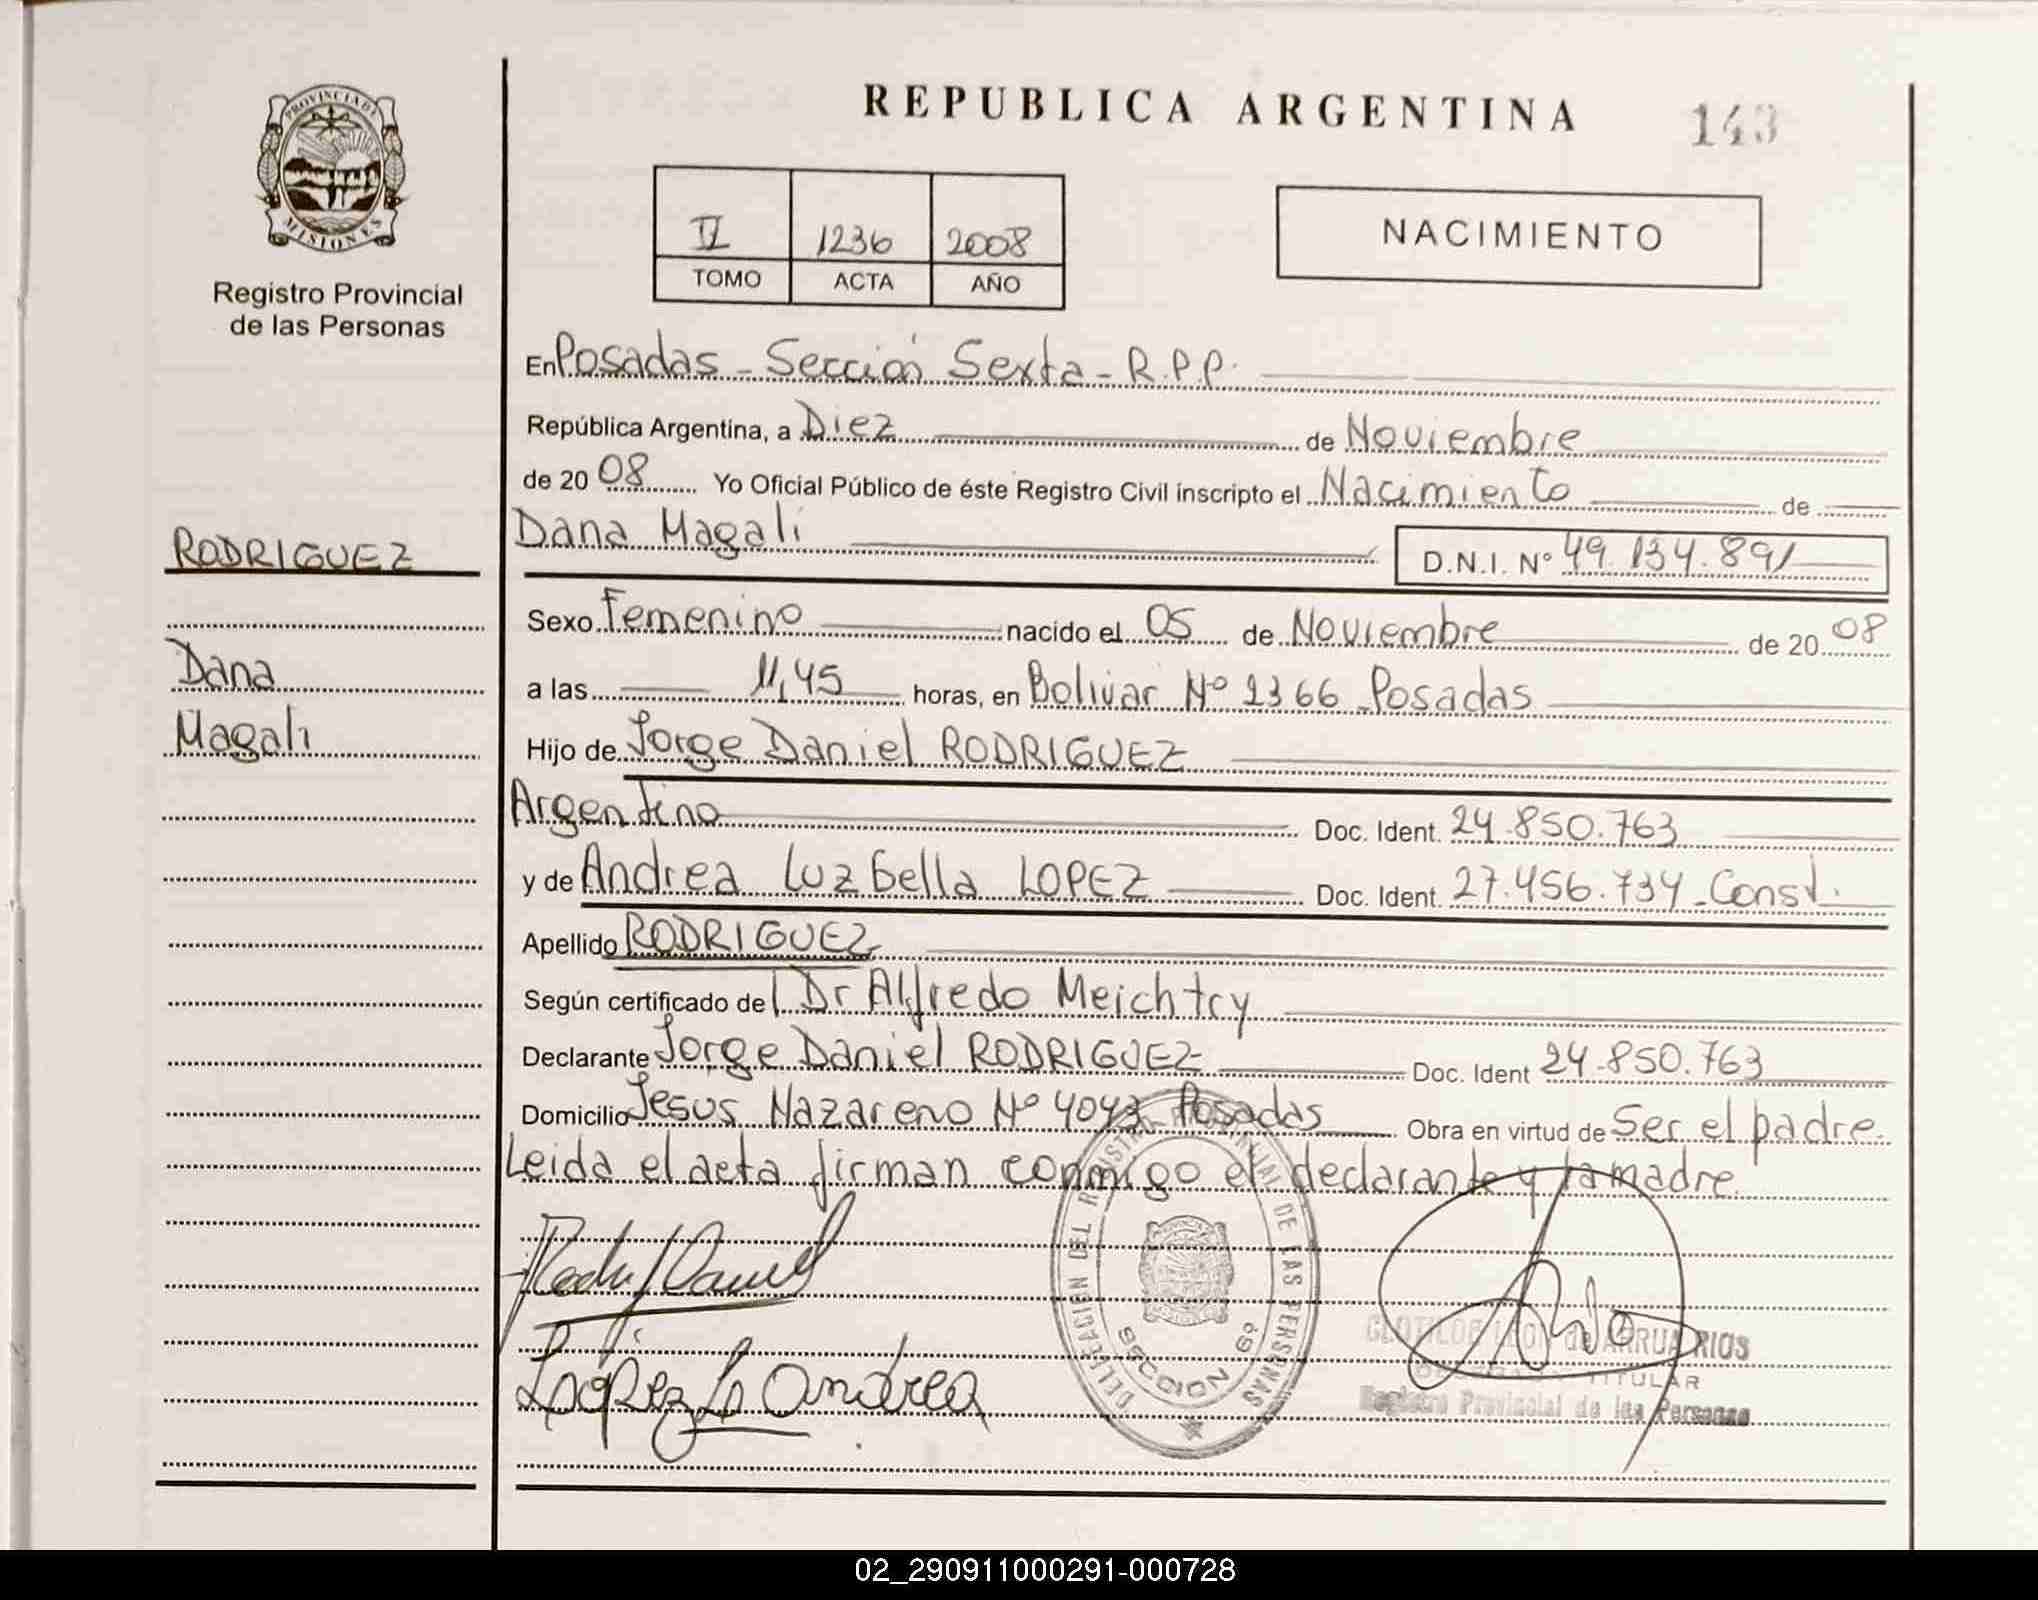 REPUBLICA ARGENTINA
143
PROVINCIA DE
MISIONES
Registro Provincial
de las Personas
II 1236 2008
TOMO ACTA AÑO
NACIMIENTO
En Posadas - Sección Sexta - R.P.P.
República Argentina, a Diez de Noviembre
de 20 08 Yo Oficial Público de éste Registro Civil inscripto el Nacimiento de
Dana Magali D.N.I. Nº 49.134.891
RODRIGUEZ
Dana
Magali
Sexo Femenino nacido el 05 de Noviembre de 20 08
a las 11,45 horas, en Bolivar Nº 1366 Posadas
Hijo de Jorge Daniel RODRIGUEZ
Argentino Doc. Ident. 24.850.763
y de Andrea Luz bella LOPEZ Doc. Ident. 27.456.734 - Const.
Apellido RODRIGUEZ
Según certificado de Dr Alfredo Meichtry
Declarante Jorge Daniel RODRIGUEZ Doc. Ident 24.850.763
Domicilio Jesus Nazareno Nº 4043 Posadas Obra en virtud de Ser el padre.
Leida el acta firman conmigo el declarante y la madre.
DELEGACION DEL REGISTRO PROVINCIAL DE LAS PERSONAS
SECCION 6º
Lopez L Andrea
de ARRUA RIOS
TITULAR
Registro Provincial de las Personas
02_290911000291-000728